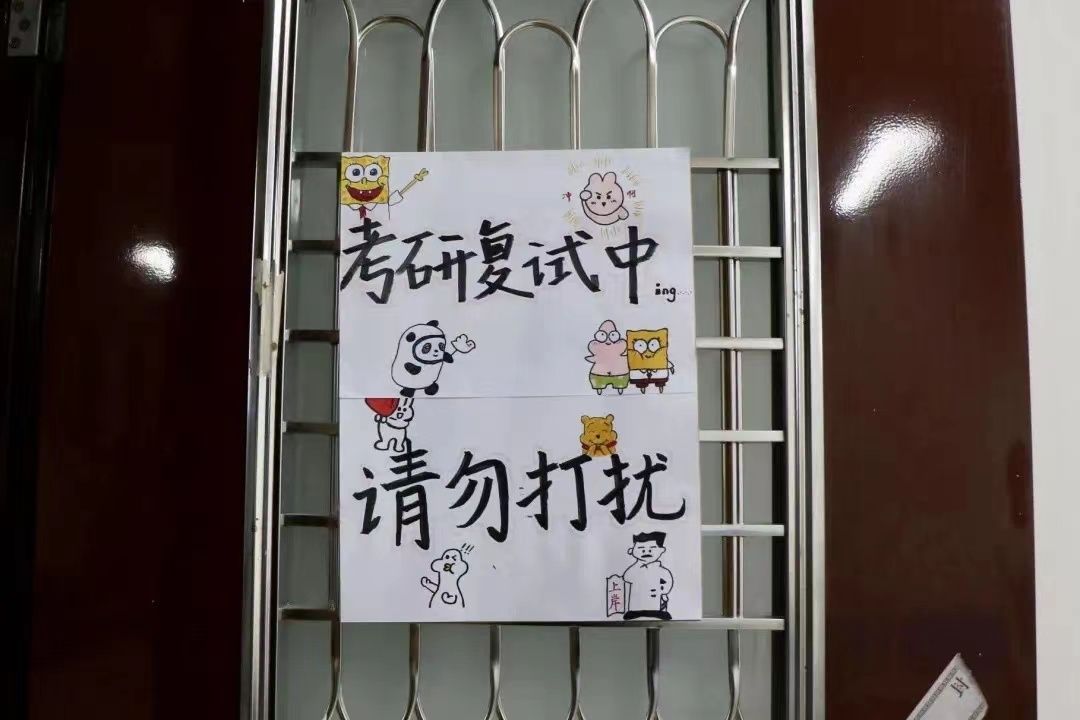 冲 啊
考研复试中ing......
请勿打扰
上岸
封